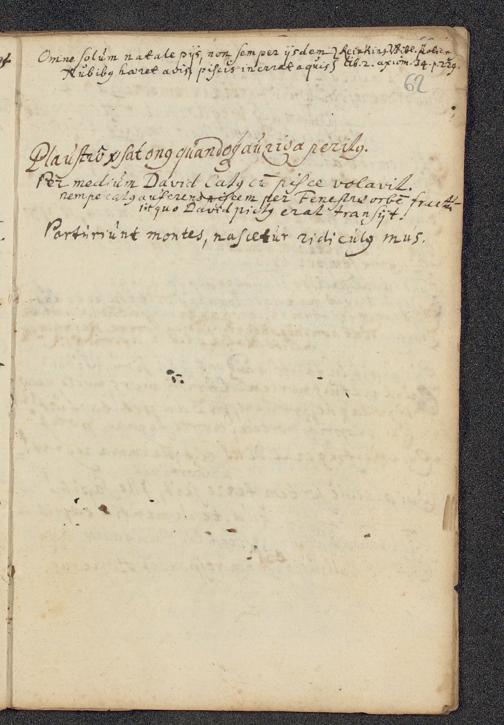 Omne solum natale pijs, non semper ijsdem } Reinking Bibl. Polic.
Nubibg hæret avis, piscis inerrat aquis } lib. 2. axiom. 34. p 229.
62
Plaustro psat onq quando auriga peritg.
Per medium David catg cū pisce volavit.
nempe catg auferens piscem per Fenestræ orbē fractū
in quo David pictg erat transijt.
Parturiunt montes, nascetur ridiculg mus.